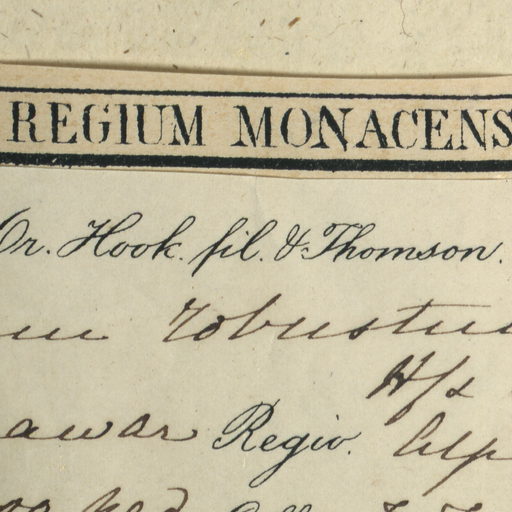 REGIUM MONACENS
Or. Hook. fil. & Thomson.
um robustu
H.f. &
awar Regio. Alp